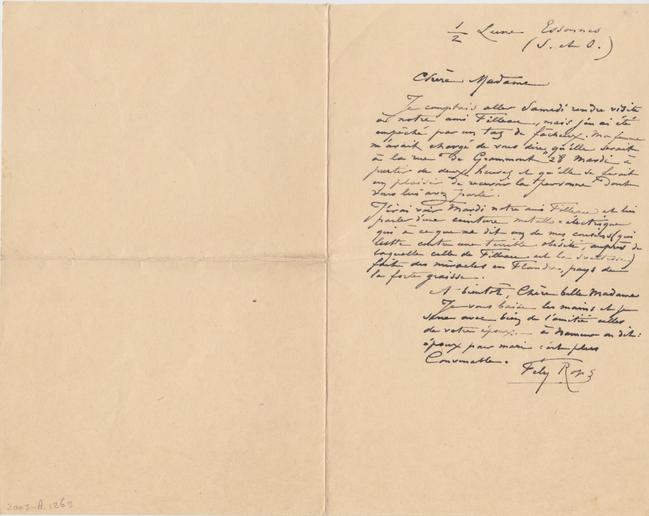 1/2 Lune Essonnes
(S. et O.)
Chère Madame
Je comptais aller Samedi rendre visite
à notre ami Filleau, mais j'en ai été
empêché par un tas de fâcheux. Ma femme
m'avait chargé de vous dire qu'elle serait
à la rue "De Grammont" 28 Mardi à
partir de deux heures et qu'elle se ferait
un plaisir de recevoir la personne dont
vous lui avez parlé.
J'irai voir Mardi notre ami Filleau et lui
parler d'une ceinture metallo-électrique
qui à ce que me dit un de mes cousins (qui
lutte contre une terrible obésité, auprès de
laquelle celle de Filleau est la sveltesse)
fait des miracles en Flandre, pays de
la forte graisse.
A bientôt, Chère belle Madame
Je vous baise les mains et je
serre avec bien de l'amitié celles
de votre époux. – à Namur on dit:
époux pour mari: c'est plus
Convenable.
Fély Rops
2005-A.1263